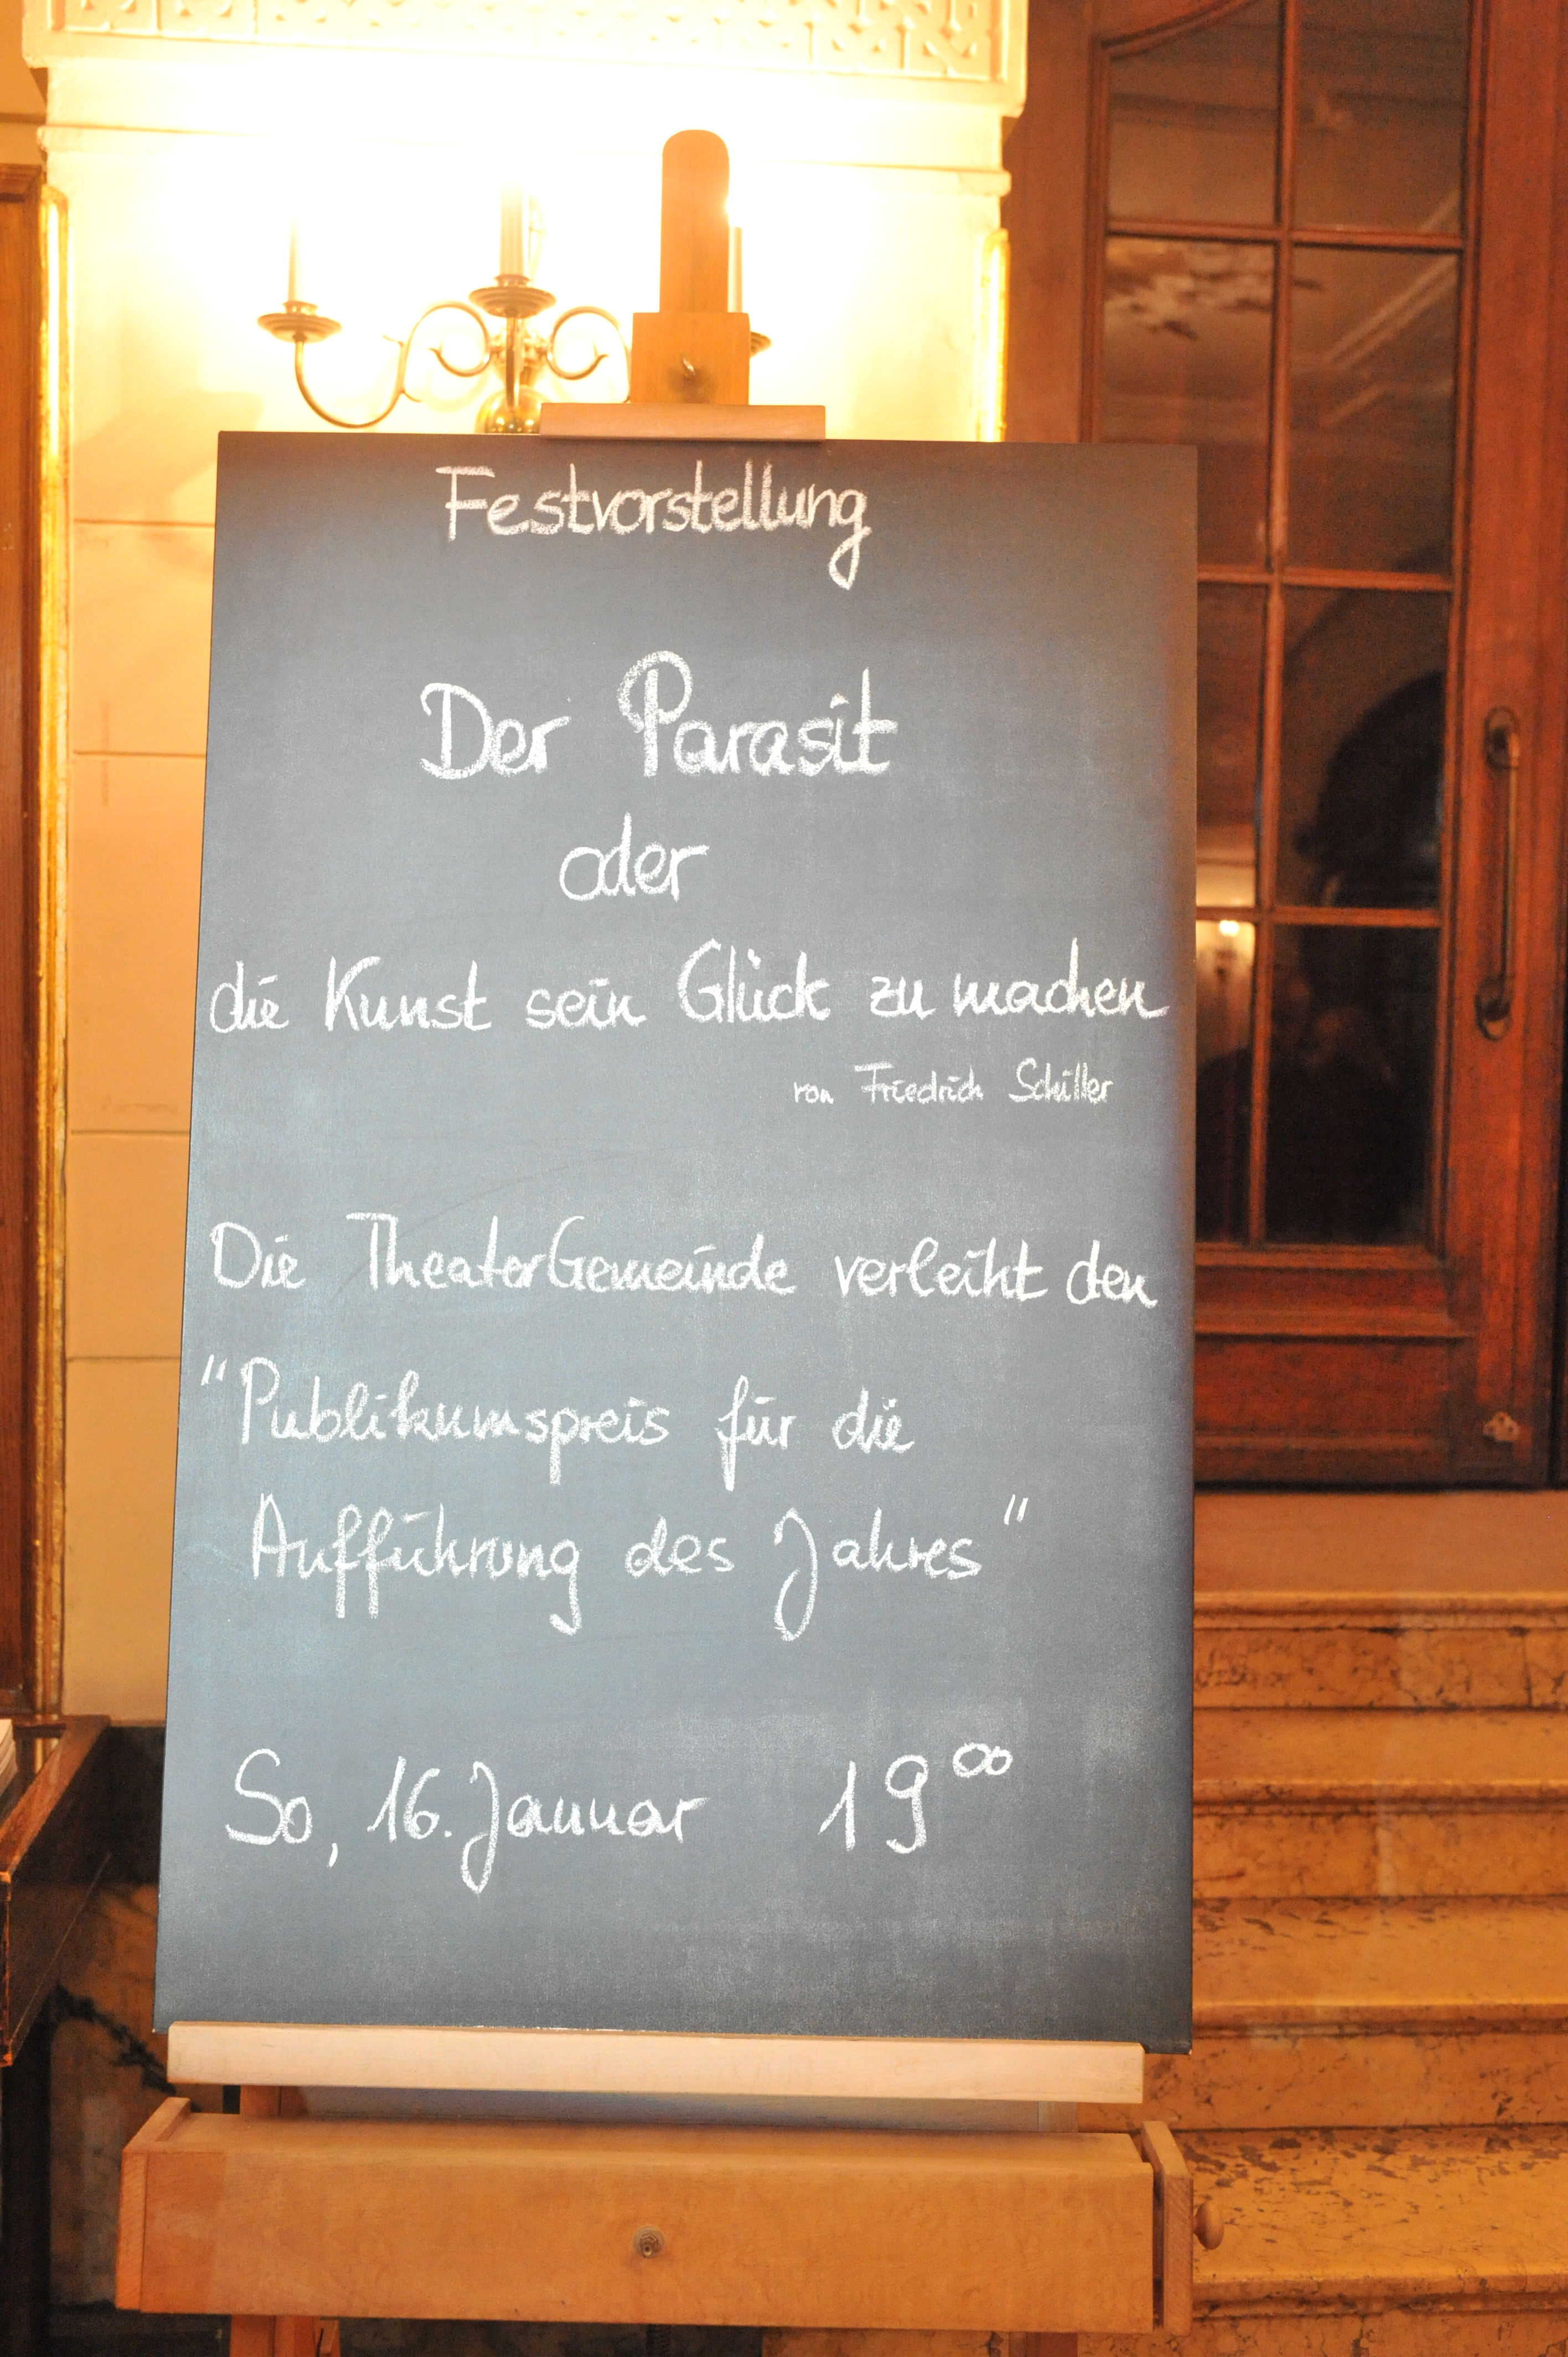 Festvorstellung
Der Parasit
oder
die Kunst sein Glück zu machen
von Friedrich Schiller
Die TheaterGemeinde verleiht den
"Publikumspreis für die
Aufführung des Jahres"
So, 16. Januar 19⁰⁰